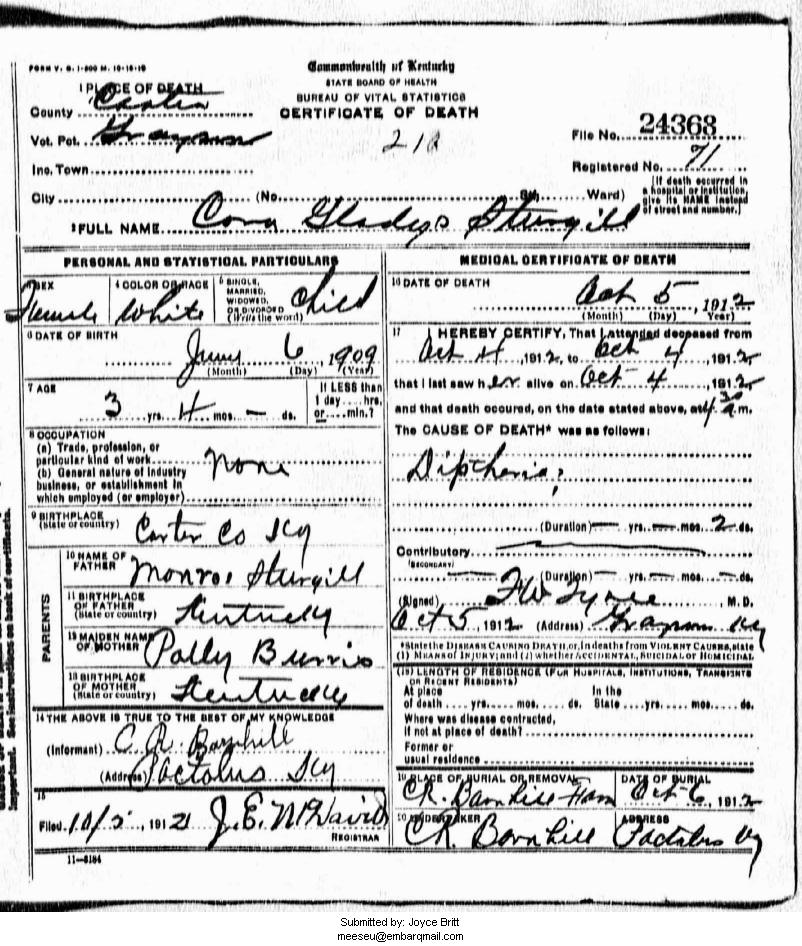 FORM V. S. 1-500 M. 10-16-19
Commonwealth of Kentucky
STATE BOARD OF HEALTH
BUREAU OF VITAL STATISTICS
CERTIFICATE OF DEATH
1 PLACE OF DEATH
County Carter
Vot. Pct. Grayson
Inc. Town
City (No. St., Ward)
212
File No. 24368
Registered No. 71
(If death occurred in
a hospital or institution,
give its NAME instead
of street and number.)
2 FULL NAME Cora Gladys Sturgill
PERSONAL AND STATISTICAL PARTICULARS
3 SEX
Female
4 COLOR OR RACE
White
5 SINGLE,
MARRIED,
WIDOWED,
OR DIVORCED
(Write the word)
Child
6 DATE OF BIRTH
June 6, 1909
(Month) (Day) (Year)
7 AGE
3 yrs. 4 mos. - ds.
If LESS than
1 day....hrs.
or....min.?
8 OCCUPATION
(a) Trade, profession, or
particular kind of work
(b) General nature of industry
business, or establishment in
which employed (or employer)
none
9 BIRTHPLACE
(State or country)
Carter Co Ky
PARENTS
10 NAME OF
FATHER
Monroe Sturgill
11 BIRTHPLACE
OF FATHER
(State or country)
Kentucky
12 MAIDEN NAME
OF MOTHER
Polly Burris
13 BIRTHPLACE
OF MOTHER
(State or country)
Kentucky
14 THE ABOVE IS TRUE TO THE BEST OF MY KNOWLEDGE
(Informant) C. R. Barnhill
(Address) Pactolus Ky
15
Filed 10/5, 1912 J. E.
REGISTRAR
11-3184
MEDICAL CERTIFICATE OF DEATH
16 DATE OF DEATH
Oct 5, 1912
(Month) (Day) (Year)
17 I HEREBY CERTIFY, That I attended deceased from
Oct 4, 1912, to Oct 4, 1912
that I last saw her alive on Oct 4, 1912
and that death occured, on the date stated above, at 4 30 a.m.
The CAUSE OF DEATH* was as follows:
Diptheria;
(Duration) - yrs. - mos. 2 ds.
Contributory
(SECONDARY)
(Duration) - yrs. - mos. - ds.
(Signed) M. D.
Oct 5, 1912 (Address) Grayson Ky
*State the DISEASE CAUSING DEATH, or, in deaths from VIOLENT CAUSES, state
(1) MEANS OF INJURY; and (2) whether ACCIDENTAL, SUICIDAL OR HOMICIDAL
(18) LENGTH OF RESIDENCE (FOR HOSPITALS, INSTITUTIONS, TRANSIENTS
OR RECENT RESIDENTS)
At place In the
of death....yrs....mos....ds. State....yrs....mos....ds.
Where was disease contracted,
if not at place of death?
Former or
usual residence
19 PLACE OF BURIAL OR REMOVAL
C.R. Barnhill Farm
DATE OF BURIAL
Oct 6, 1912
20 UNDERTAKER
C.R. Barnhill
ADDRESS
Pactolus Ky
important. See instructions on back of certificate.
Submitted by: Joyce Britt
meeseu@embarqmail.com